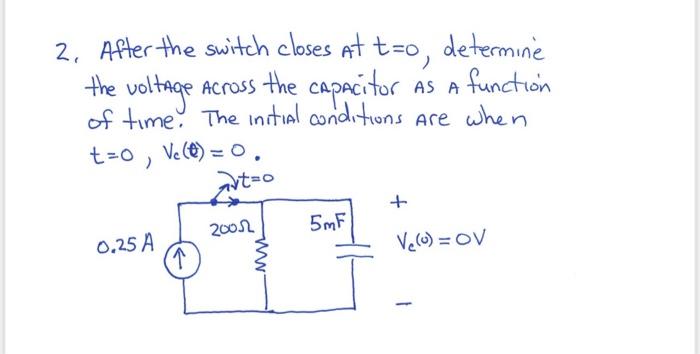 2. After the switch closes at t=0, determine
the voltage across the capacitor as a function
of time. The initial conditions are when
t=0, Vc(0) = 0.
t=0
200Ω
5mF
+
0.25 A
Vc(0) = 0V
-